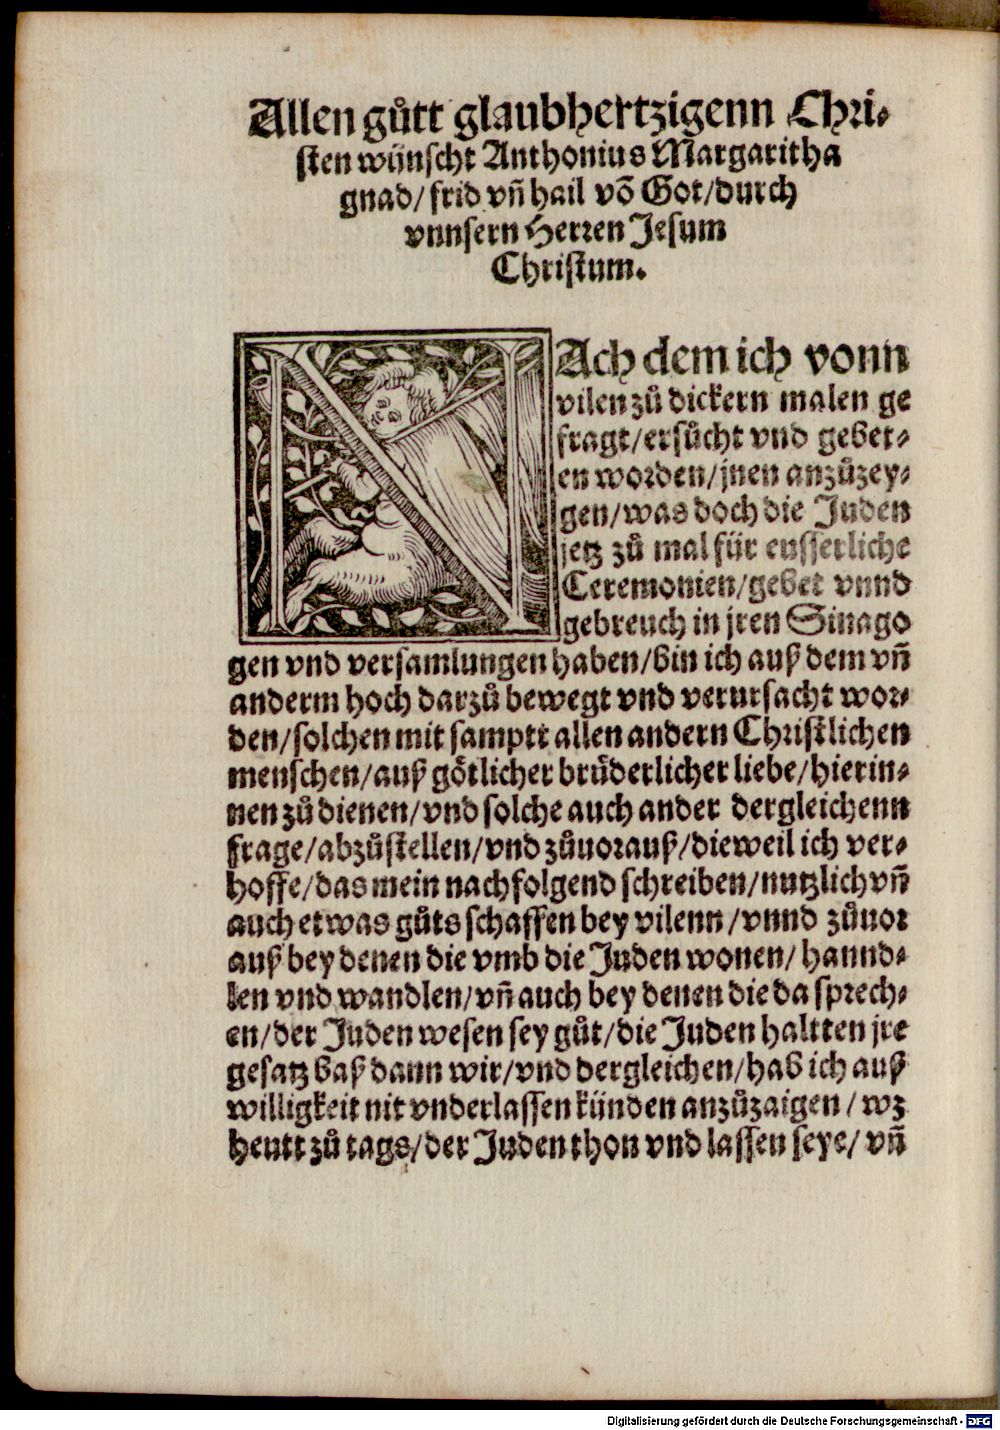 Allen gůtt glaubhertzigenn Chri⸗
sten wünscht Anthonius Margaritha
gnad/ frid vñ hail võ Got/durch
vnnsern Herren Jesum
Christum.
NAch dem ich vonn
vilen zů dickern malen ge
fragt/ersůcht vnd gebet⸗
en worden/jnen anzůzey⸗
gen/was doch die Juden
jetz zů mal für eusserliche
Ceremonien/gebet vnnd
gebreuch in jren Sinago
gen vnd versamlungen haben/bin ich auß dem vñ
anderm hoch darzů bewegt vnd verursacht wor⸗
den/solchen mit samptt allen andern Christlichen
menschen/auß götlicher brüderlicher liebe/hierin⸗
nen zů dienen/vnd solche auch ander dergleichenn
frage/abzůstellen/vnd zůuorauß/dieweil ich ver⸗
hoffe/das mein nachfolgend schreiben/nutzlich vñ
auch etwas gůts schaffen bey vilenn/vnnd zůuor
auß bey denen die vmb die Juden wonen/ hannd⸗
len vnd wandlen/vñ auch bey denen die da sprech⸗
en/der Juden wesen sey gůt/die Juden haltten jre
gesatz baß dann wir/vnd dergleichen/hab ich auß
willigkeit nit vnderlassen künden anzůzaigen/ wz
heutt zů tags/der Juden thon vnd lassen seye/ vñ
Digitalisierung gefördert durch die Deutsche Forschungsgemeinschaft - DFG